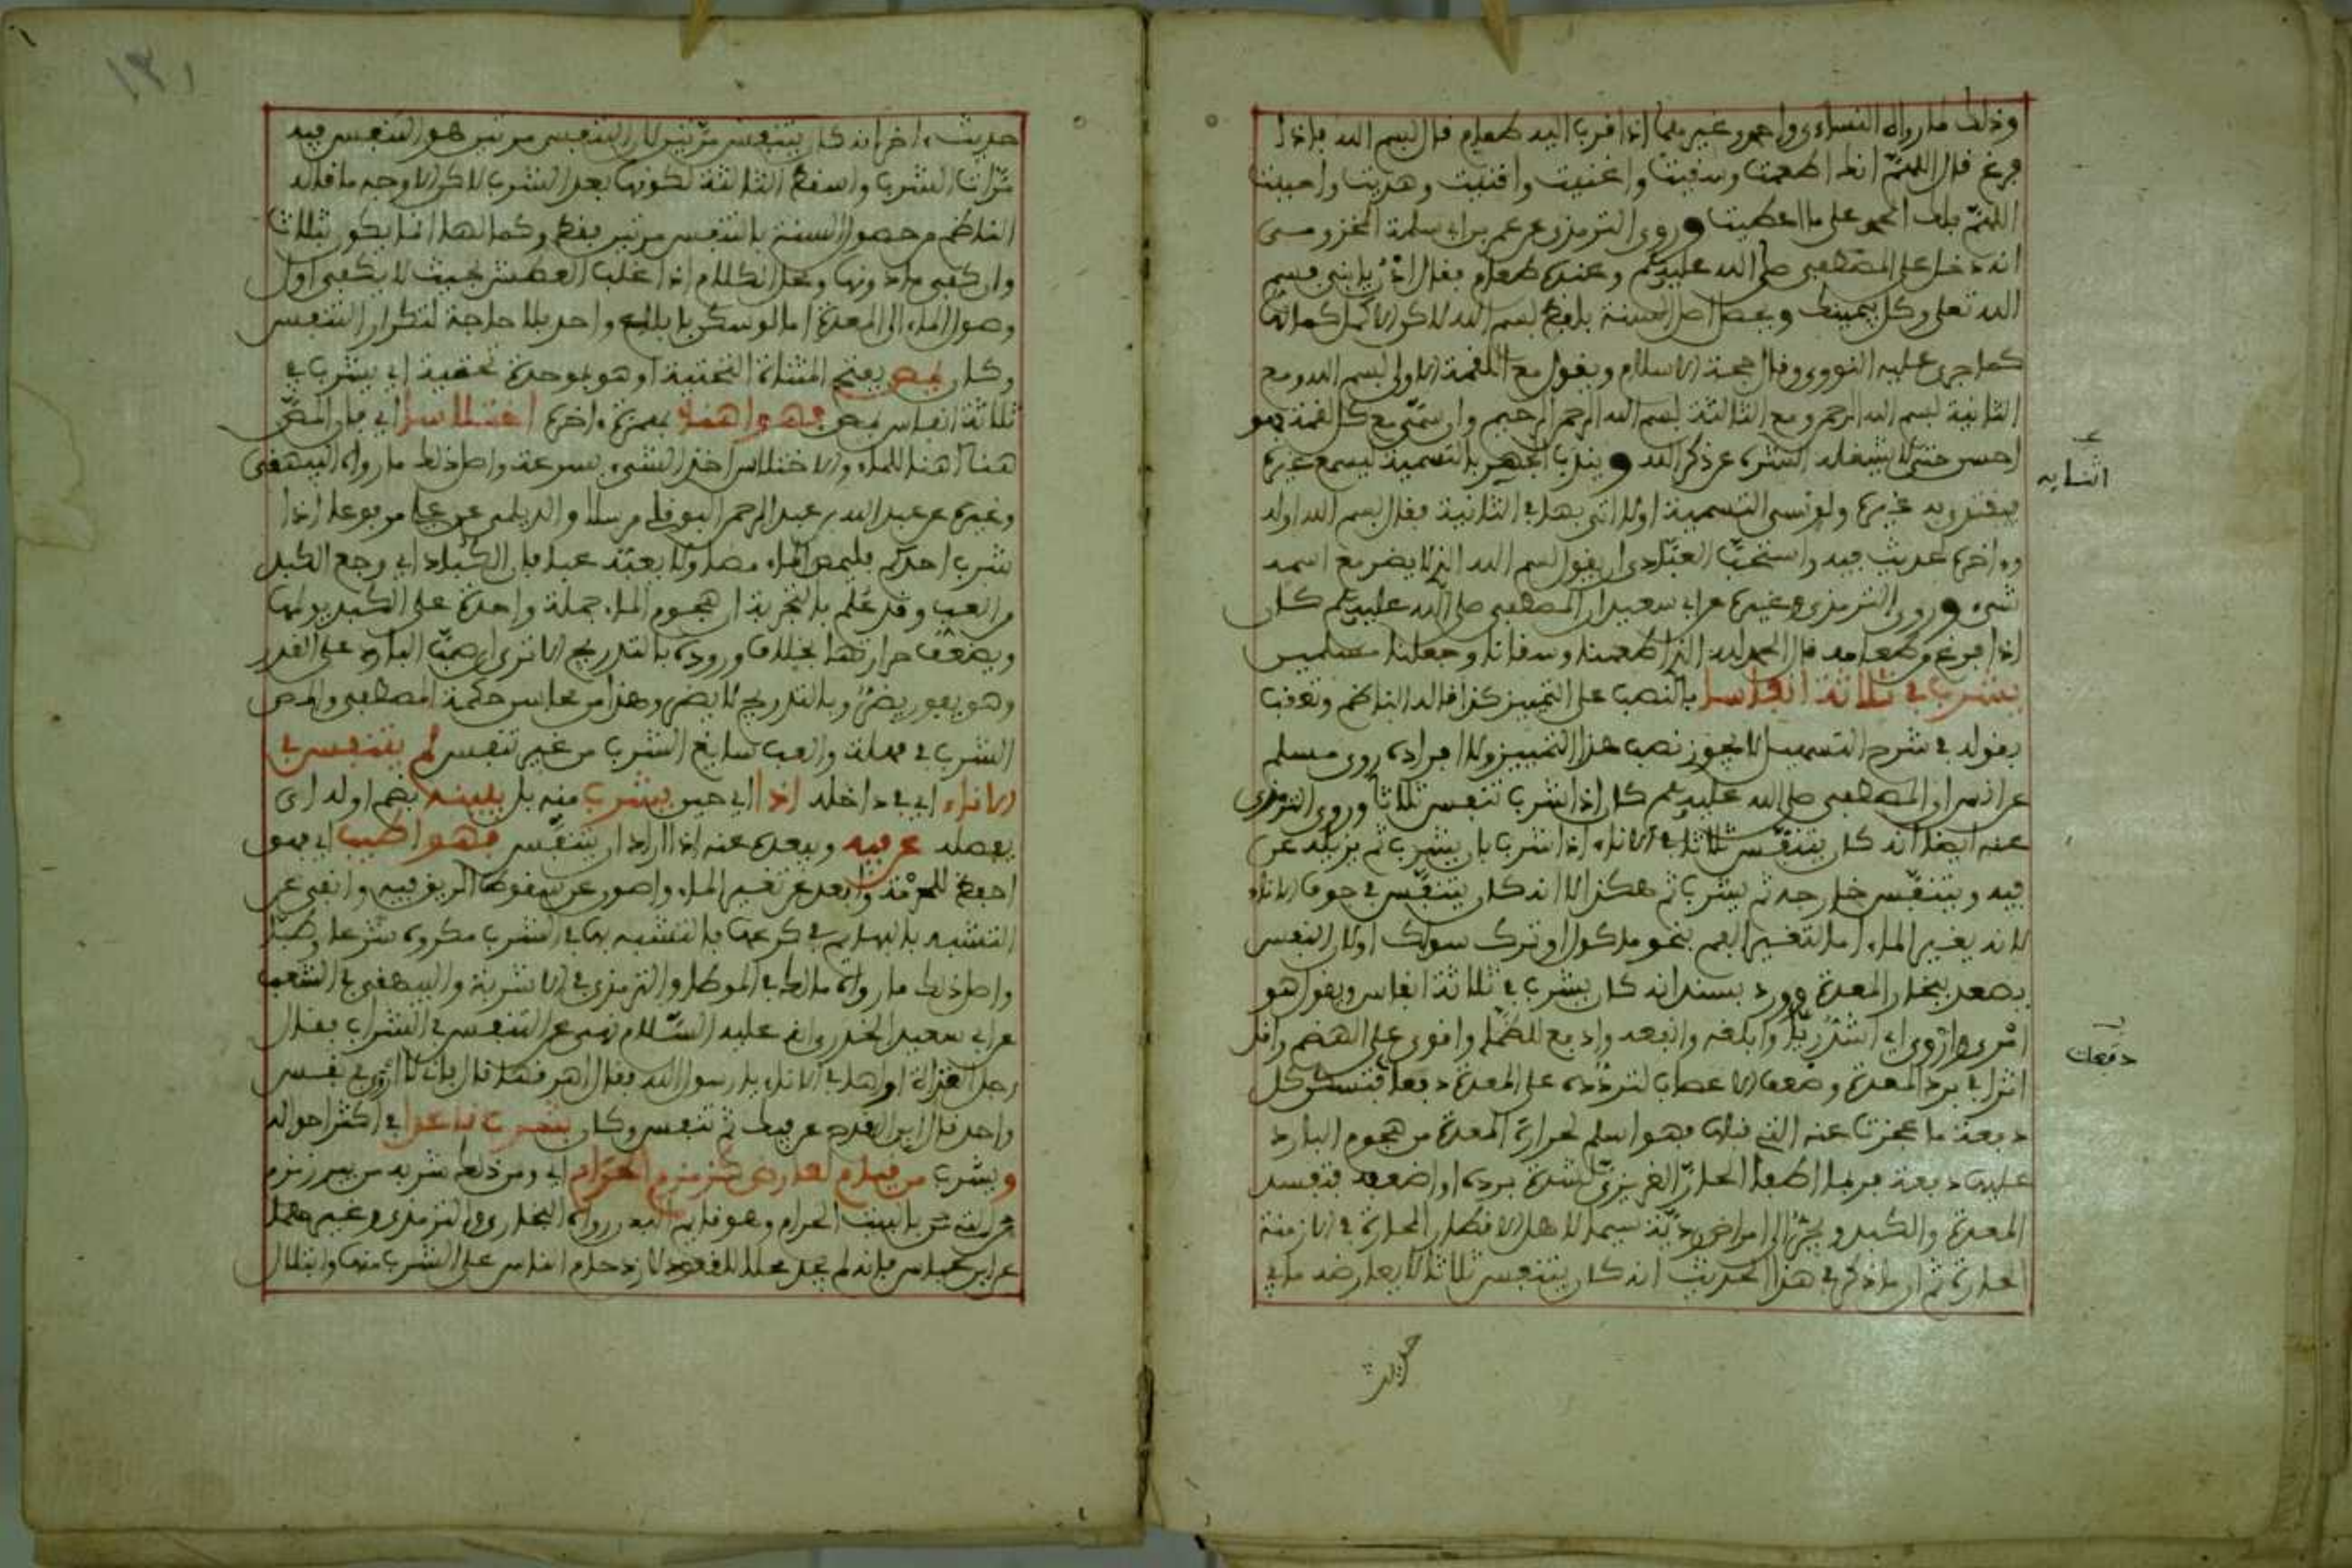 وذلك ما رواه النساءي واحمد وغيرهما اذا قرب اليه طعام قال بسم الله فاذا
فرغ قال اللهم انك اطعمت وسقيت واغنيت واقنيت وهديت واحييت
اللهم فلك الحمد على ما اعطيت وروى الترمذي عن عمر بن ابي سلمة المخزومي
انه دخل على المصطفى صلى الله عليه وسلم وعنده طعام فقال ادن يا بني فسم
الله تعلى وكل بيمينك ويحصل اصل السنة بلفظ بسم الله لاكن الاكمل كمالها
كما جرى عليه النووي وقال حجة الاسلام ويقول مع اللقمة الاولى بسم الله ومع
الثانية بسم الله الرحمن ومع الثالثة بسم الله الرحمن الرحيم وان سمى مع كل لقمة فهو
احسن حتى لا يشغله الشره عن ذكر الله ويندب الجهر بالتسمية ليسمع غيره
فيقتدي به غيره ولو نسي التسمية اولا اتى بها في الثانية فقال بسم الله اوله
وءاخره لحديث فيه واستحب العبادي ان يقول بسم الله الذي لا يضر مع اسمه
شيء وروى الترمذي وغيره عن ابي سعيد ان المصطفى صلى الله عليه وسلم كان
اذا فرغ من طعامه قال الحمد لله الذي اطعمنا وسقانا وجعلنا مسلمين
يشرب في ثلاثة انفاسا بالنصب على التمييز كذا قاله الناظم وتعقب
بقوله في شرح التسهيل لا يجوز نصب هذا التمييز ولا افراده روى مسلم
عن انس ان المصطفى صلى الله عليه وسلم كان اذا شرب تنفس ثلاثا وروى الترمذي
عنه ايضا انه كان يتنفس ثلاثا في الاناء اذا شرب بان يشرب ثم يزيله عن
فيه ويتنفس خارجه ثم يشرب ثم هكذا لا انه كان يتنفس في جوف الاناء
لانه يغير الماء اما لتغير الفم بنحو ماكول او ترك سواك او لان النفس
يصعد ببخار المعدة وورد بسند انه كان يشرب في ثلاثة انفاس ويقول هو
امرى واروى اي اشد ريا وابلغه وانفعه وادفع للظما واقوى على الهضم واقل
اثرا في برد المعدة وضعف الاعصاب لتردده على المعدة دفعا فتسكن كل
دفعة ما عجزت عنه التي قبلها فهو اسلم لحرارة المعدة من هجوم البارد
عليها دفعة فربما اطفا الحار الغريزي لشدة برده او اضعفه فتفسد
المعدة والكبد ويجر الى امراض ردية سيما لاهل الاقطار الحارة في الازمنة
الحارة ثم ان ما ذكر في هذا الحديث انه كان يتنفس ثلاثا لا يعارضه ما في
حديث
الثانيه
دفعات
١٣١
حديث ءاخر انه كان يتنفس مرتين لان التنفس مرتين هو التنفس فيه
مرات الشرب واسقط الثالثة لكونها بعد الشرب لاكن الاوجه ما قاله
الناظم من حصول السنة بالتنفس مرتين فقط وكمالها انما يكون بثلاث
وان كفى ما دونها ومحل الكلام اذا غلب العطش بحيث لا يكفي اول
وصول الماء الى المعدة اما لو سكن بابلاع واحد فلا حاجة لتكرار التنفس
وكان يمص بفتح المثناة التحتية او هو بموحدة تحتية اي يشرب في
ثلاثة انفاس مص فهو اهنا بهمزة ءاخره اختلاسا اي فان المص
هنا اهنا للماء والاختلاس اخذ الشيء بسرعة واصل ذلك ما رواه البيهقي
وغيره عن عبد الله بن عبد الرحمن النوفلي مرسلا والديلمي عن علي مرفوعا اذا
شرب احدكم فليمص الماء مصا ولا يعبه عبا فان الكباد اي وجع الكبد
من العب وقد علم بالتجربة ان هجوم الماء جملة واحدة على الكبد يولمها
ويضعف حرارتها بخلاف وروده بالتدريج الا ترى ان صب البارد على القدر
وهو يفور يضر وبالتدريج لا يضر وهذا من محاسن حكمة المصطفى والمص
الشرب في مهلة والعب تتابع الشرب من غير تنفس لم يتنفس في
الاناء اي في داخله اذا اي حين يشرب منه بل يبينه بضم اوله اي
يفصله عن فيه ويبعده عنه اذا اراد ان يتنفس فهو اطيب اي فهو
احفظ للحرمة وابعد عن تغيير الماء واصون عن سقوط الريق فيه وانفى عن
التشبه بالبهايم في كرعها فالتشبه بها في الشرب مكروه شرعا وطبا
واصل ذلك ما رواه مالك في الموطا والترمذي في الاشربة والبيهقي في الشعب
عن ابي سعيد الخدري انه عليه السلام نهى عن التنفس في الشراب فقال
رجل القذاة اراها في الاناء يا رسول الله فقال اهرقها قال فاني لا اروى في نفس
واحد قال ابن القدح عن فيك ثم تنفس وكان يشرب قاعدا في اكثر احواله
ويشرب من قيام لعذر من زمزم الحرام اي ومن ذلك شربه من بير زمزم
بالبيت الحرام وهو قايم رواه البخاري والترمذي وغيرهما
عن ابن عباس فانه لم يجد محلا للقعود لازدحام الناس على الشرب منها وابتلال